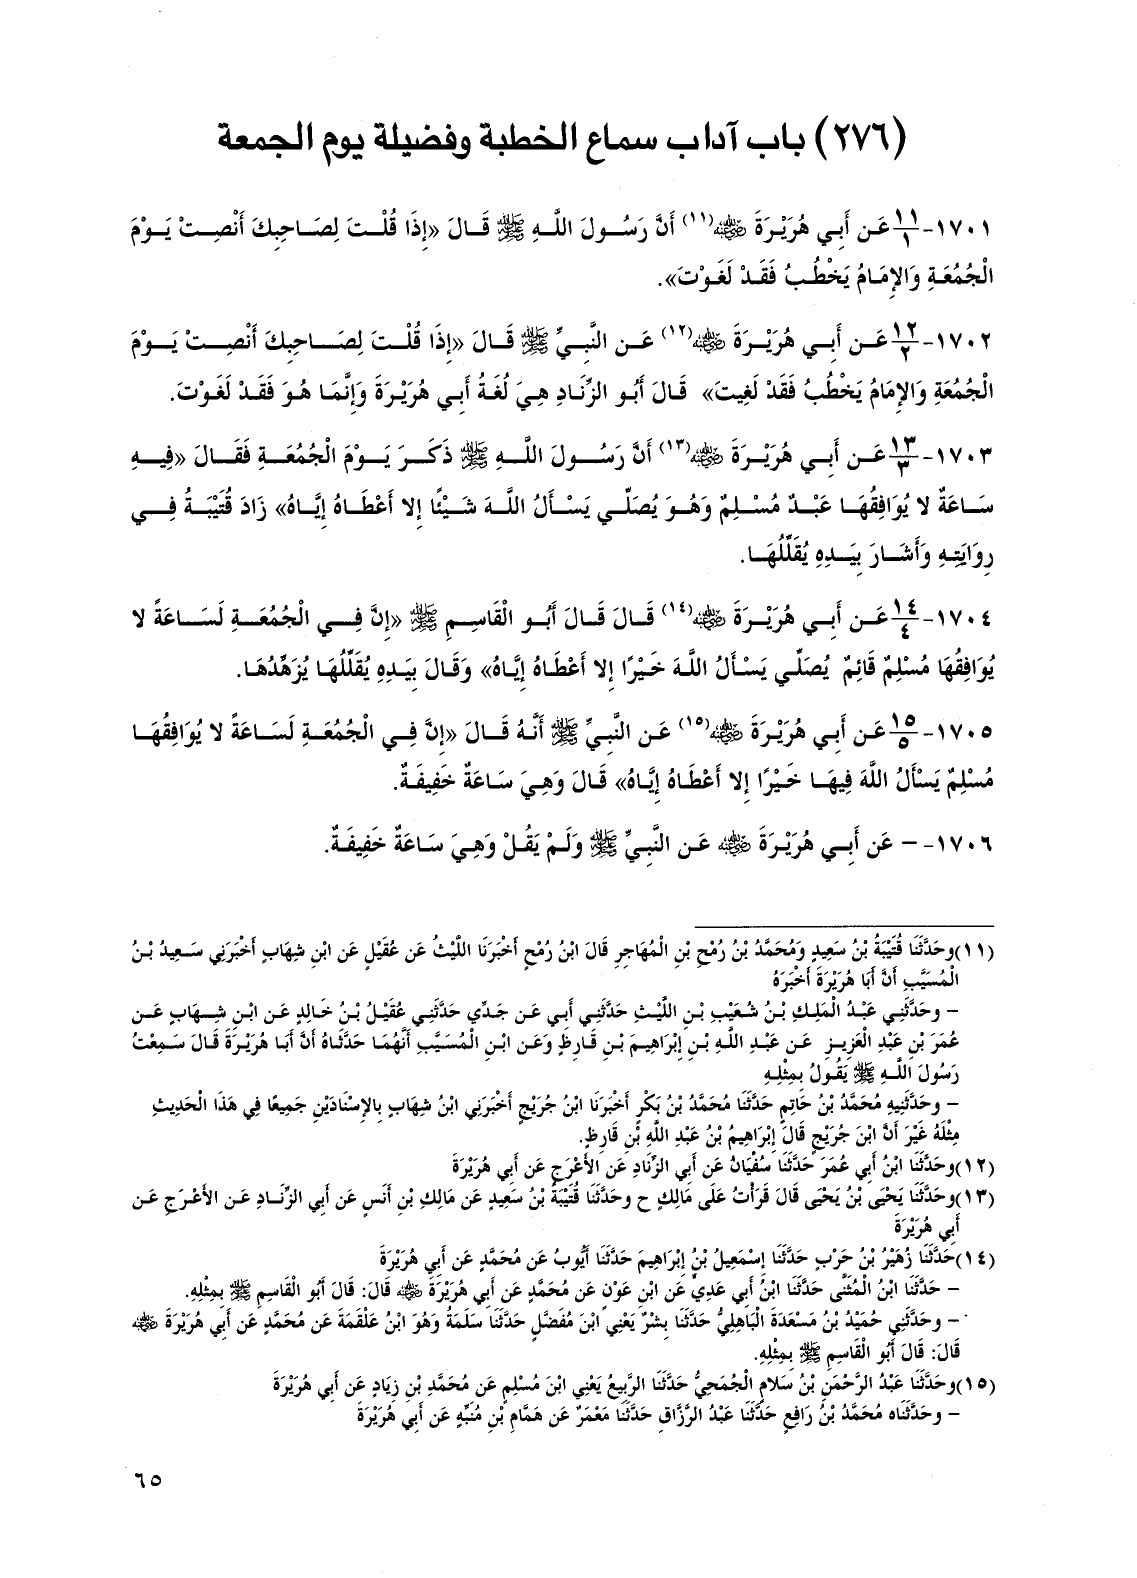 (٢٧٦) باب آداب سماع الخطبة وفضيلة يوم الجمعة
١٧٠١- ١١/١ عَن أَبِي هُرَيْرَةَ ﵁(١١) أَنَّ رَسُولَ اللَّهِ ﷺ قَالَ «إِذَا قُلْتَ لِصَاحِبِكَ أَنْصِتْ يَوْمَ
الْجُمُعَةِ وَالإِمَامُ يَخْطُبُ فَقَدْ لَغَوْتَ».
١٧٠٢- ١٢/٢ عَن أَبِي هُرَيْرَةَ ﵁(١٢) عَن النَّبِيِّ ﷺ قَالَ «إِذَا قُلْتَ لِصَاحِبِكَ أَنْصِتْ يَوْمَ
الْجُمُعَةِ وَالإِمَامُ يَخْطُبُ فَقَدْ لَغِيتَ» قَالَ أَبُو الزِّنَادِ هِيَ لُغَةُ أَبِي هُرَيْرَةَ وَإِنَّمَا هُوَ فَقَدْ لَغَوْتَ.
١٧٠٣- ١٣/٣ عَن أَبِي هُرَيْرَةَ ﵁(١٣) أَنَّ رَسُولَ اللَّهِ ﷺ ذَكَرَ يَوْمَ الْجُمُعَةِ فَقَالَ «فِيهِ
سَاعَةٌ لا يُوَافِقُهَا عَبْدٌ مُسْلِمٌ وَهُوَ يُصَلِّي يَسْأَلُ اللَّهَ شَيْئًا إِلا أَعْطَاهُ إِيَّاهُ» زَادَ قُتَيْبَةُ فِي
رِوَايَتِهِ وَأَشَارَ بِيَدِهِ يُقَلِّلُهَا.
١٧٠٤- ١٤/٤ عَن أَبِي هُرَيْرَةَ ﵁(١٤) قَالَ قَالَ أَبُو الْقَاسِمِ ﷺ «إِنَّ فِي الْجُمُعَةِ لَسَاعَةً لا
يُوَافِقُهَا مُسْلِمٌ قَائِمٌ يُصَلِّي يَسْأَلُ اللَّهَ خَيْرًا إِلا أَعْطَاهُ إِيَّاهُ» وَقَالَ بِيَدِهِ يُقَلِّلُهَا يُزَهِّدُهَا.
١٧٠٥- ١٥/٥ عَن أَبِي هُرَيْرَةَ ﵁(١٥) عَن النَّبِيِّ ﷺ أَنَّهُ قَالَ «إِنَّ فِي الْجُمُعَةِ لَسَاعَةً لا يُوَافِقُهَا
مُسْلِمٌ يَسْأَلُ اللَّهَ فِيهَا خَيْرًا إِلا أَعْطَاهُ إِيَّاهُ» قَالَ وَهِيَ سَاعَةٌ خَفِيفَةٌ.
١٧٠٦- – عَن أَبِي هُرَيْرَةَ ﵁ عَن النَّبِيِّ ﷺ وَلَمْ يَقُلْ وَهِيَ سَاعَةٌ خَفِيفَةٌ.
(١١)وحَدَّثَنَا قُتَيْبَةُ بْنُ سَعِيدٍ وَمُحَمَّدُ بْنُ رُمْحِ بْنِ الْمُهَاجِرِ قَالَ ابْنُ رُمْحٍ أَخْبَرَنَا اللَّيْثُ عَن عُقَيْلٍ عَن ابْنِ شِهَابٍ أَخْبَرَنِي سَعِيدُ بْنُ
الْمُسَيَّبِ أَنَّ أَبَا هُرَيْرَةَ أَخْبَرَهُ
– وحَدَّثَنِي عَبْدُ الْمَلِكِ بْنُ شُعَيْبِ بْنِ اللَّيْثِ حَدَّثَنِي أَبِي عَن جَدِّي حَدَّثَنِي عُقَيْلُ بْنُ خَالِدٍ عَن ابْنِ شِهَابٍ عَن
عُمَرَ بْنِ عَبْدِ الْعَزِيزِ عَن عَبْدِ اللَّهِ بْنِ إِبْرَاهِيمَ بْنِ قَارِظٍ وَعَن ابْنِ الْمُسَيَّبِ أَنَّهُمَا حَدَّثَاهُ أَنَّ أَبَا هُرَيْرَةَ قَالَ سَمِعْتُ
رَسُولَ اللَّهِ ﷺ يَقُولُ بِمِثْلِهِ
– وحَدَّثَنِيهِ مُحَمَّدُ بْنُ حَاتِمٍ حَدَّثَنَا مُحَمَّدُ بْنُ بَكْرٍ أَخْبَرَنَا ابْنُ جُرَيْجٍ أَخْبَرَنِي ابْنُ شِهَابٍ بِالإِسْنَادَيْنِ جَمِيعًا فِي هَذَا الْحَدِيثِ
مِثْلَهُ غَيْرَ أَنَّ ابْنَ جُرَيْجٍ قَالَ إِبْرَاهِيمُ بْنُ عَبْدِ اللَّهِ بْنِ قَارِظٍ.
(١٢)وحَدَّثَنَا ابْنُ أَبِي عُمَرَ حَدَّثَنَا سُفْيَانُ عَن أَبِي الزِّنَادِ عَن الأَعْرَجِ عَن أَبِي هُرَيْرَةَ
(١٣)وحَدَّثَنَا يَحْيَى بْنُ يَحْيَى قَالَ قَرَأْتُ عَلَى مَالِكٍ ح وحَدَّثَنَا قُتَيْبَةُ بْنُ سَعِيدٍ عَن مَالِكِ بْنِ أَنَسٍ عَن أَبِي الزِّنَادِ عَن الأَعْرَجِ عَن
أَبِي هُرَيْرَةَ
(١٤)حَدَّثَنَا زُهَيْرُ بْنُ حَرْبٍ حَدَّثَنَا إِسْمَعِيلُ بْنُ إِبْرَاهِيمَ حَدَّثَنَا أَيُّوبُ عَن مُحَمَّدٍ عَن أَبِي هُرَيْرَةَ
– حَدَّثَنَا ابْنُ الْمُثَنَّى حَدَّثَنَا ابْنُ أَبِي عَدِيٍّ عَن ابْنِ عَوْنٍ عَن مُحَمَّدٍ عَن أَبِي هُرَيْرَةَ ﵁ قَالَ: قَالَ أَبُو الْقَاسِمِ ﷺ بِمِثْلِهِ.
– وحَدَّثَنِي حُمَيْدُ بْنُ مَسْعَدَةَ الْبَاهِلِيُّ حَدَّثَنَا بِشْرٌ يَعْنِي ابْنَ مُفَضَّلٍ حَدَّثَنَا سَلَمَةُ وَهُوَ ابْنُ عَلْقَمَةَ عَن مُحَمَّدٍ عَن أَبِي هُرَيْرَةَ ﵁
قَالَ: قَالَ أَبُو الْقَاسِمِ ﷺ بِمِثْلِهِ.
(١٥)وحَدَّثَنَا عَبْدُ الرَّحْمَنِ بْنُ سَلامٍ الْجُمَحِيُّ حَدَّثَنَا الرَّبِيعُ يَعْنِي ابْنَ مُسْلِمٍ عَن مُحَمَّدِ بْنِ زِيَادٍ عَن أَبِي هُرَيْرَةَ
– وحَدَّثَنَاه مُحَمَّدُ بْنُ رَافِعٍ حَدَّثَنَا عَبْدُ الرَّزَّاقِ حَدَّثَنَا مَعْمَرٌ عَن هَمَّامِ بْنِ مُنَبِّهٍ عَن أَبِي هُرَيْرَةَ
٦٥